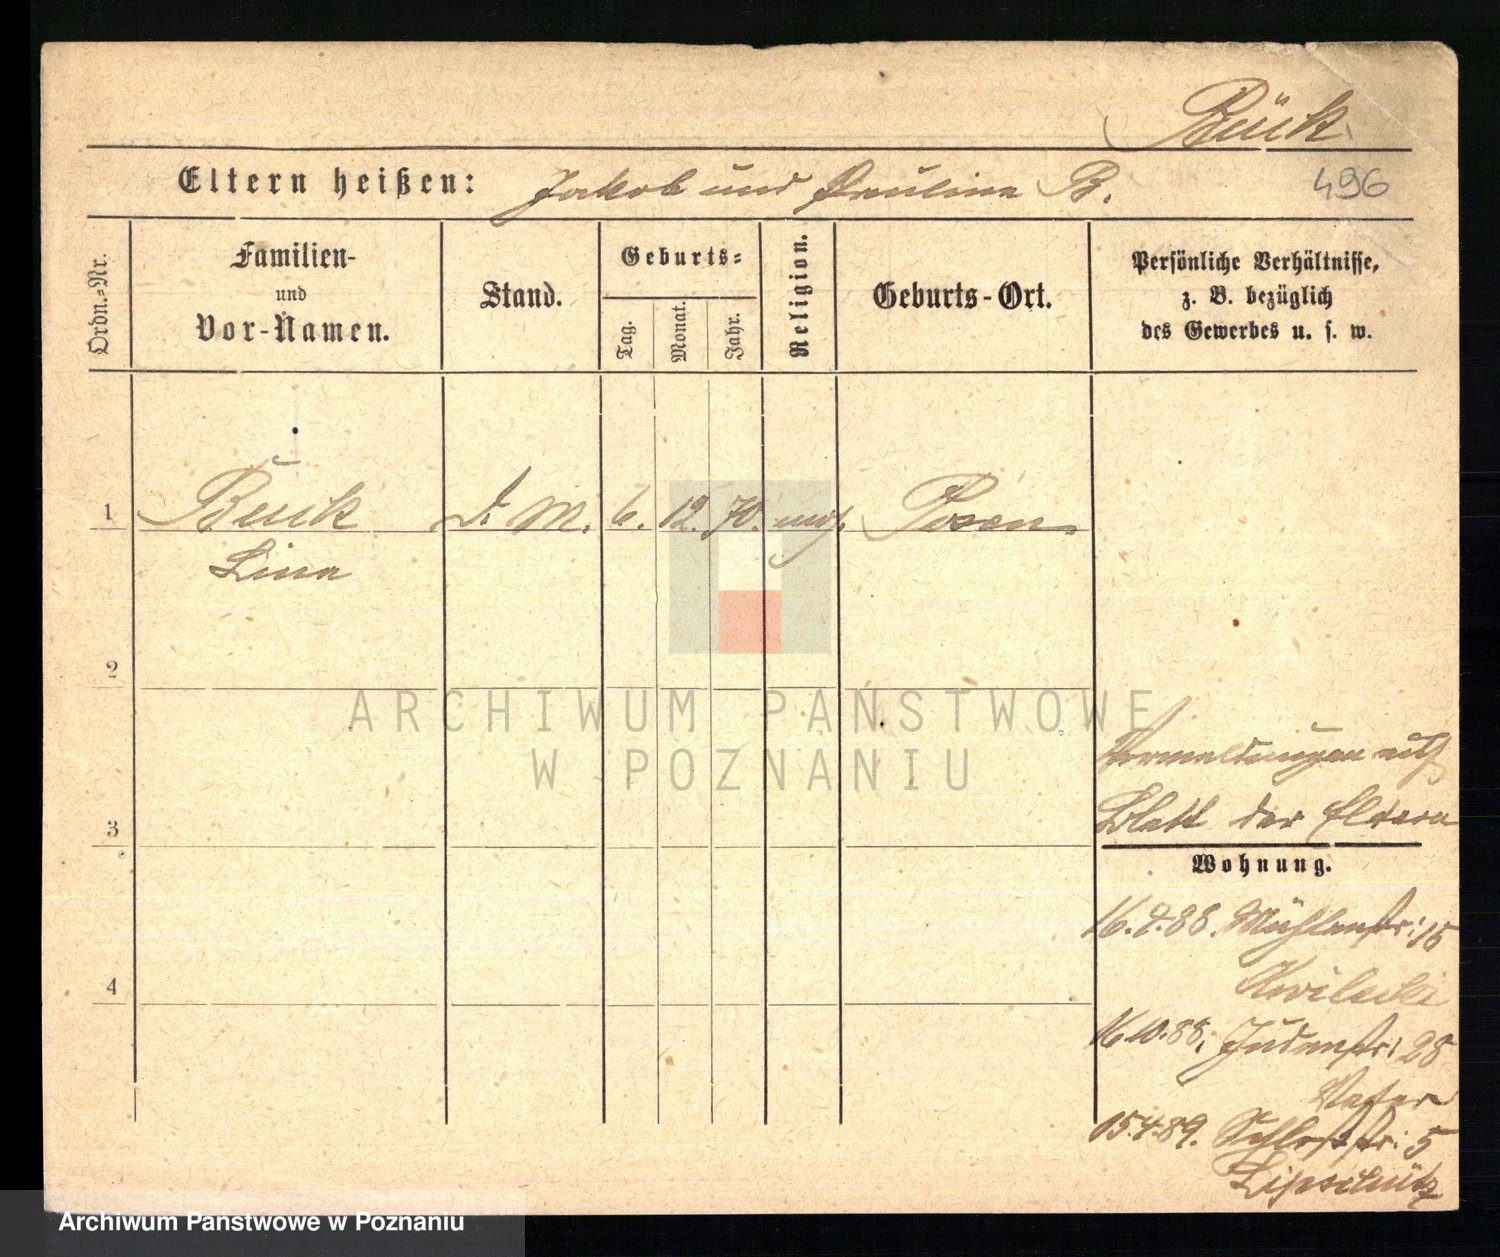 Bük
Eltern heißen: Jakob und Pauline B.
496
Ordn.-Nr.
Familien-
und
Vor-Namen.
Stand.
Geburts-
Tag.
Monat.
Jahr.
Religion.
Geburts-Ort.
Persönliche Verhältnisse,
z. B. bezüglich
des Gewerbes u. s. w.
1 Buik d. M. 6. 12. 70. mos. Posen
Lina
2
ARCHIWUM PAŃSTWOWE
W POZNANIU
Vermeldungen auf
3 Blatt der Eltern
Wohnung.
16.7.88. Mühlenstr: 15
Kwilecki
4
16.10.88. Judenstr: 28
Vater
15.4.89. Schloßstr: 5
Lipschütz
Archiwum Państwowe w Poznaniu